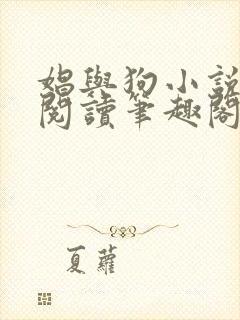 娼與狗小說
閱讀筆趣閣
夏蘿